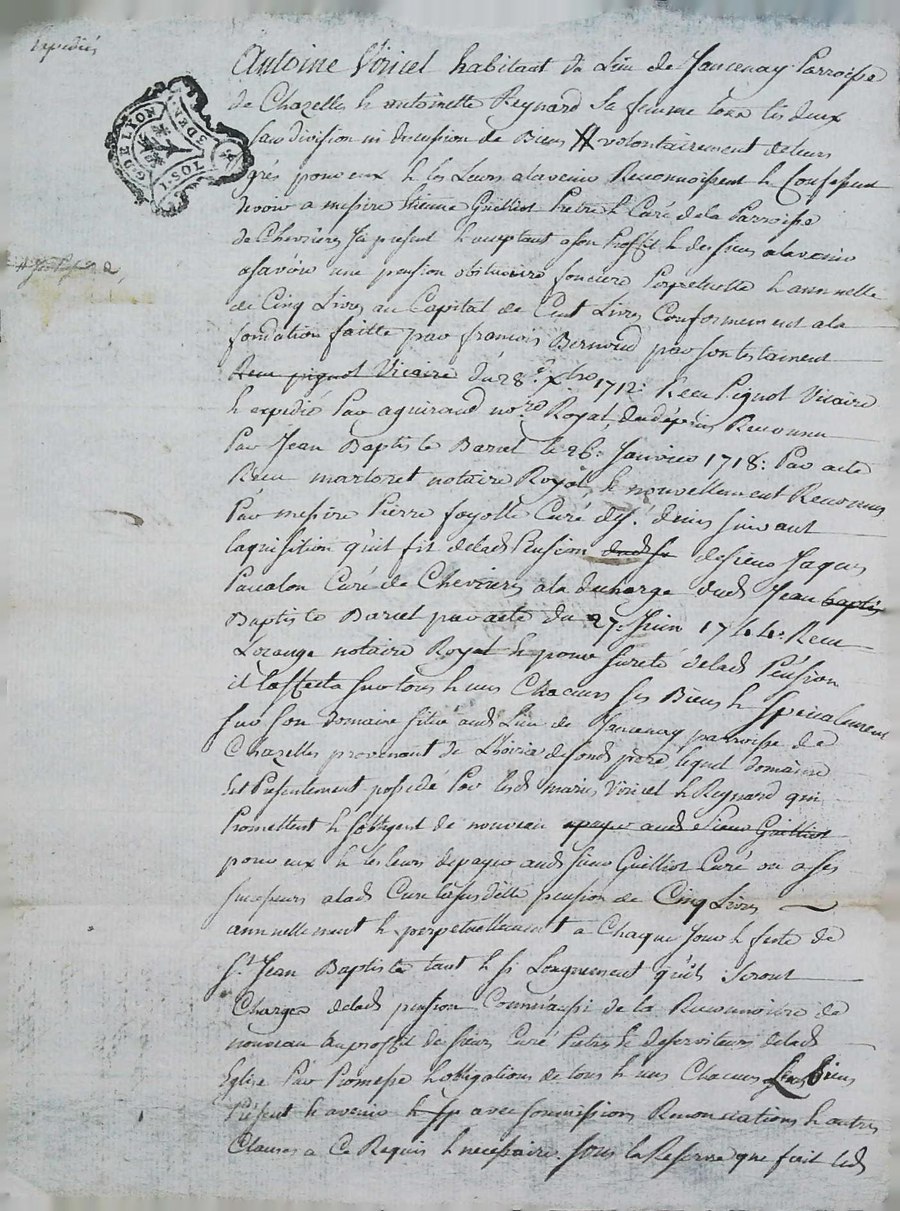 Expediés
G. DE LYON
3 DEN.
2 SOLS
Antoine Viricel habitant du Lieu de Jancenay Parroisse
de Chazelle & antoinette Reynard sa femme tous les deux
sans division ni discussion de Biens volontairement de leurs
grés pour eux & les Leurs alavenir Reconnoissent & Confessent
devoir a messire Etienne Guilliot Pretre & Curé de la Parroisse
de Chevrieres Ici present & acceptant a son Proffit & des siens alavenir
asavoir une pension obituaire fonciere Perpetuelle & annuelle
de Cinq Livres au Capital de Cent Livres Conformement ala
fondation faitte par francois Bernoud par son testament
Receu pignol Vicaire du 28e. Xbre 1712: Receu Pignol Vicaire
& expedié Par aguiraud nore. Royal, dudépuis Reconnu
Par Jean Baptiste Barcel le 26: Janvier 1718: Par acte
Receu marloret notaire Royal, & nouvellement Reconnu
Par messire Pierre fayolle Curé de st. denis suivant
laquisition qu'il fit deladt Pension dudt sr de sieur Jaques
Pacalon Curé de Chevrieres ala decharge dudt Jean baptis
Baptiste Barcel par acte du 27: Juin 1744: Receu
Lorange notaire Royal & pour sureté deladt Pension
il laffecta sur tous & uns Chacuns ses Biens & specialement
sur son domaine situé audt Lieu de Jancenay parroisse de
Chazelles provenant de defondt père lequel domaine
Est Presentement possedé Par lesdt mariés Viricel & Reynard qui
Promettent & sobligent de nouveau apayer audt sieur Guilliot
pour eux & les leurs de payer audt sieur Guilliot Curé ou a ses
successeurs aladt Cure la susditte pension de Cinq Livres
annuellement & perpetuellement a Chaque Jour & feste de
St. Jean Baptiste tant & si Longuement qu'ils seront
Chargés deladt pension Comm'aussi de la Reconnoitre de
nouveau au proffit des sieurs Curé Pretres & desserviteurs deladt
Eglise Par Promesse & obligations de tous & uns Chacuns Leurs biens
Présent & avenir & sp avec soumissions Renonciations & autres
Clauses a Ce Requis & necessaire. sous la Reserve que fait ledt